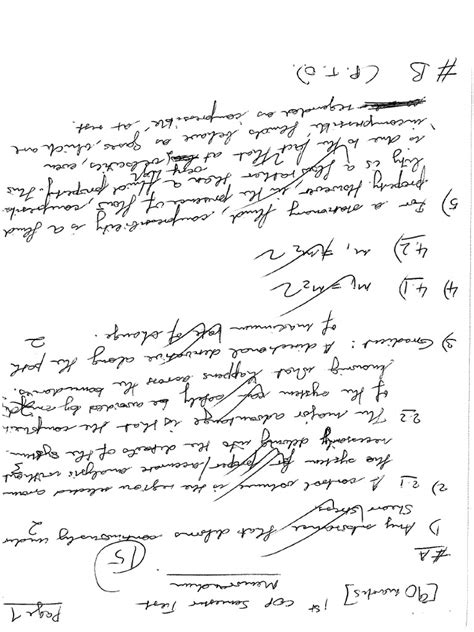 Page 1
[90 marks] 1st Semester Test
Memorandum
#A
15
1) Any substance that deforms continuously under
Shear stress 2
2) 2.1 A control volume is the region selected around
the system for proper/accurate analysis without
necessarily delving into the details of the system.
2.2 The major advantage is that the
of the system can safely be avoided by
knowing what happens across the boundaries.
3) Gradient: A directional derivative along the path
of maximum rate of change. 2
4) 4.1) m1 = m2 2
4.2) m1 ≠ m2 2
5) For a stationary fluid, compressibility is a fluid
property. However, in the presence of flow,
is a flow rather than a fluid property. This
is due to the fact that at very low velocities, even
fluids behave as gases which are
regarded as 'compressible' at rest.
#B (P.T.O).